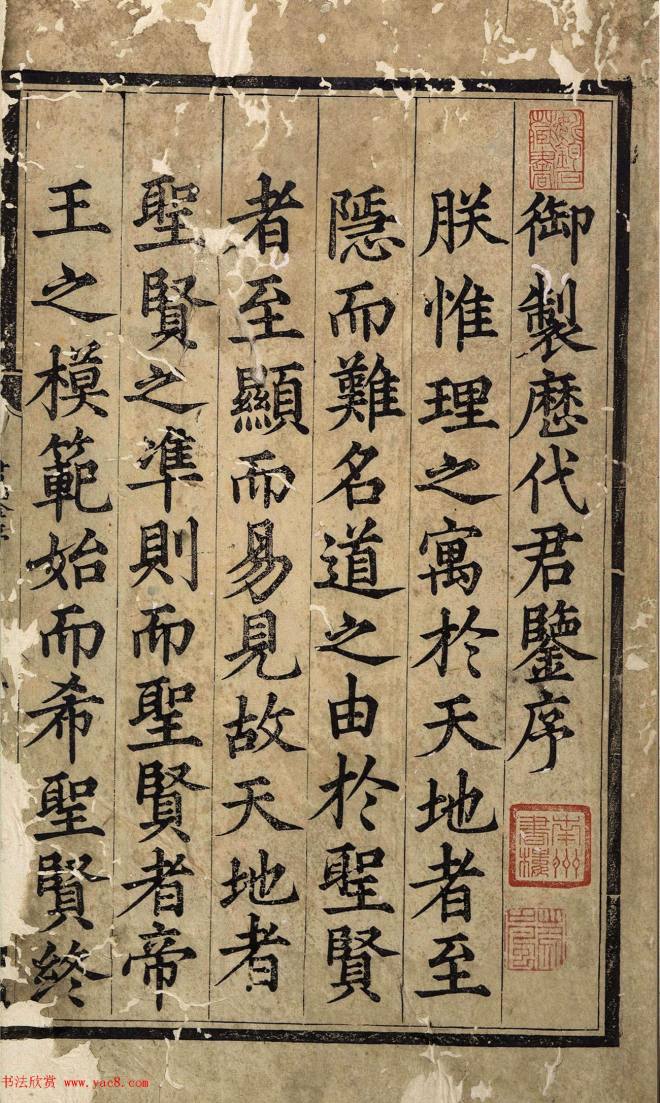 御製歷代君鑒序
朕惟理之寓於天地者至
隱而難名道之由於聖賢
者至顯而易見故天地者
聖賢之準則而聖賢者帝
王之模範始而希聖賢終
南州書樓
书法欣赏 www.yac8.com